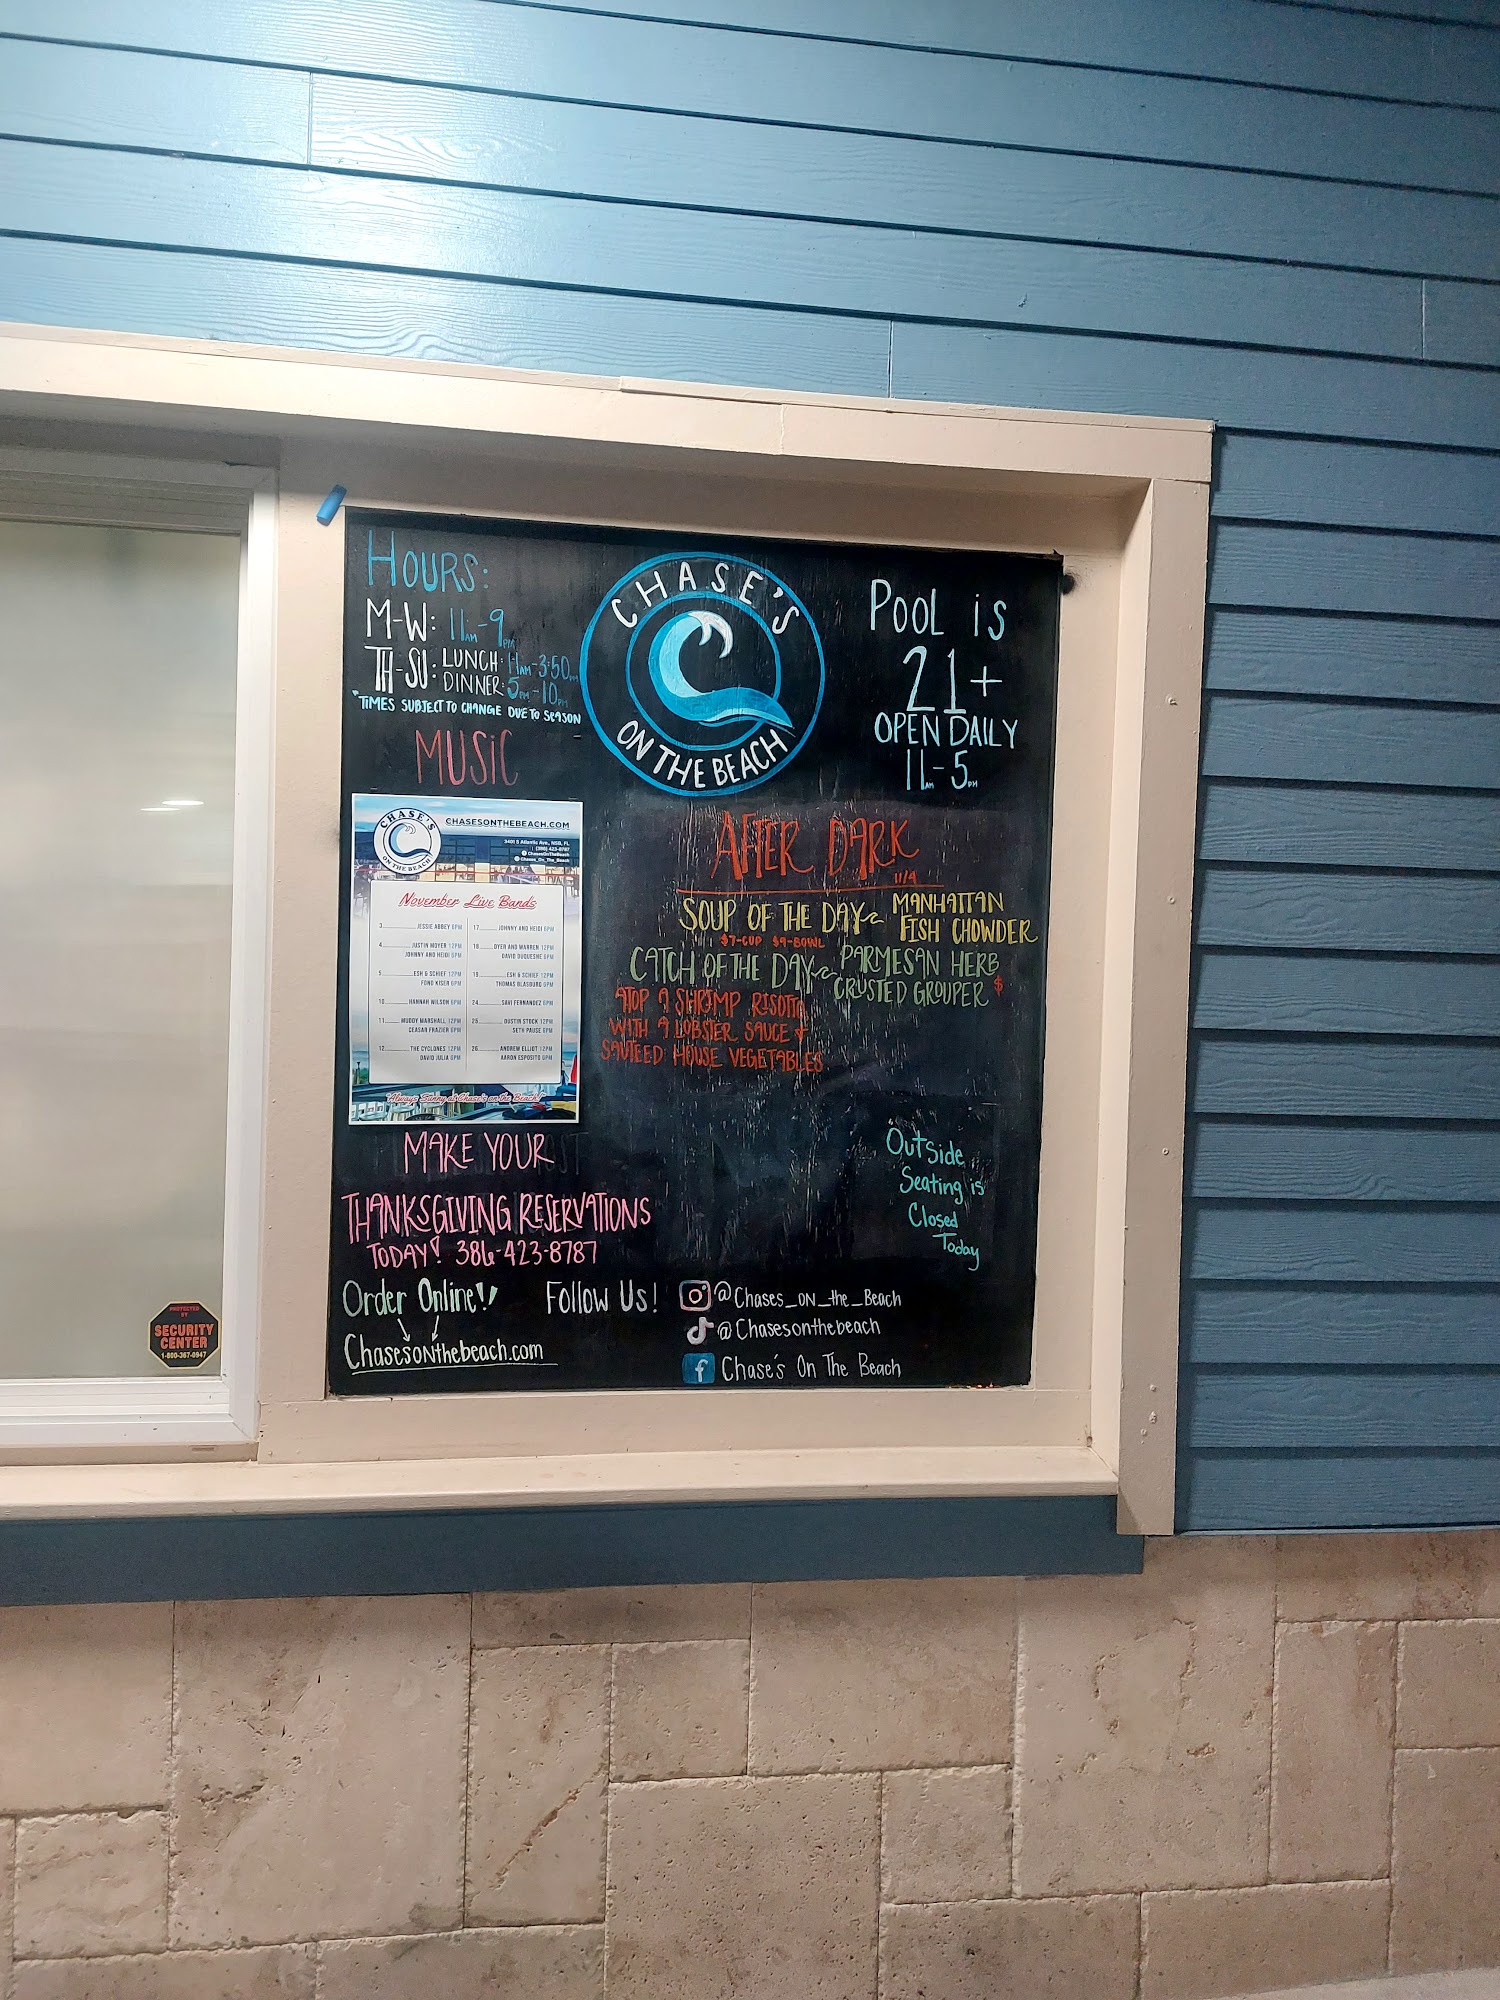 HOURS:
M-W: 11AM-9PM
TH-SU: LUNCH: 11AM-3:50PM
DINNER: 5PM-10PM
*TIMES SUBJECT TO CHANGE DUE TO SEASON
CHASE'S
ON THE BEACH
POOL IS
21+
OPEN DAILY
11AM-5PM
MUSIC
CHASE'S
ON THE BEACH
CHASESONTHEBEACH.COM
3401 S Atlantic Ave., NSB, FL
(386) 423-8787
ChasesOnTheBeach
Chases_On_The_Beach
November Live Bands
3 JESSIE ABBEY 6PM
4 JUSTIN MOYER 12PM
JOHNNY AND HEIDI 6PM
5 ESH & SCHIEF 12PM
FOND KISER 6PM
10 HANNAH WILSON 6PM
11 MUDDY MARSHALL 12PM
CEASAR FRAZIER 6PM
12 THE CYCLONES 12PM
DAVID JULIA 6PM
17 JOHNNY AND HEIDI 6PM
18 DYER AND WARREN 12PM
DAVID DUQUESNE 6PM
19 ESH & SCHIEF 12PM
THOMAS GLASBURG 6PM
24 SAVI FERNANDEZ 6PM
25 DUSTIN STOCK 12PM
SETH PAUSE 6PM
26 ANDREW ELLIOT 12PM
AARON ESPOSITO 6PM
"Always Sunny at Chase's on the Beach!"
AFTER DARK
11/4
SOUP OF THE DAY~ MANHATTAN
FISH CHOWDER
$7-CUP $9-BOWL
CATCH OF THE DAY~ PARMESAN HERB
CRUSTED GROUPER $
ATOP A SHRIMP RISOTTO
WITH A LOBSTER SAUCE &
SAUTEED HOUSE VEGETABLES
Outside
Seating is
Closed
Today
MAKE YOUR
THANKSGIVING RESERVATIONS
TODAY! 386-423-8787
Order Online!!
Chasesonthebeach.com
Follow Us!
@Chases_on_the_Beach
@Chasesonthebeach
f Chase's On The Beach
PROTECTED
BY
SECURITY
CENTER
1-800-367-0947